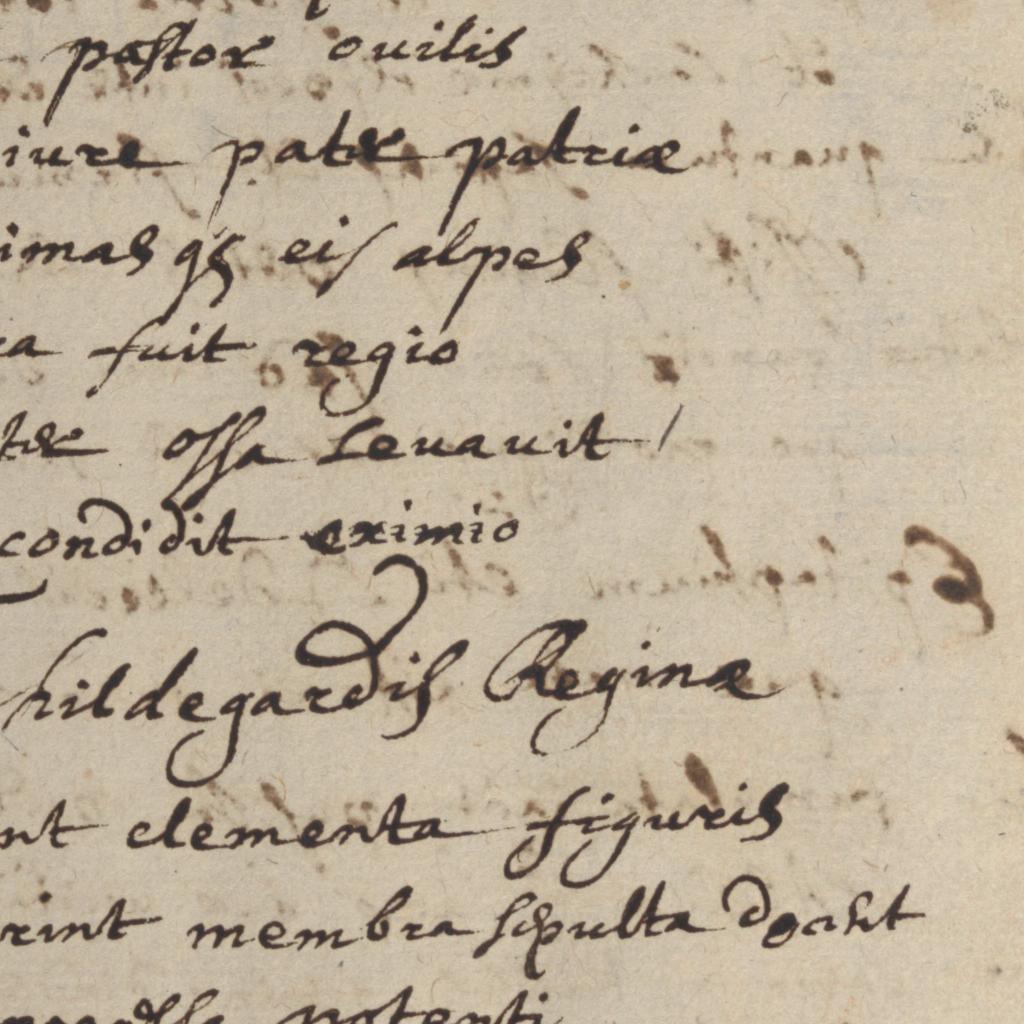 pastor ovilis
iure pater patriæ
imas qz eis alpes
a fuit regio
ter ossa levavit /
condidit eximio
hildegardis Reginæ
nt elementa figuris
rint membra sepulta docent
potenti